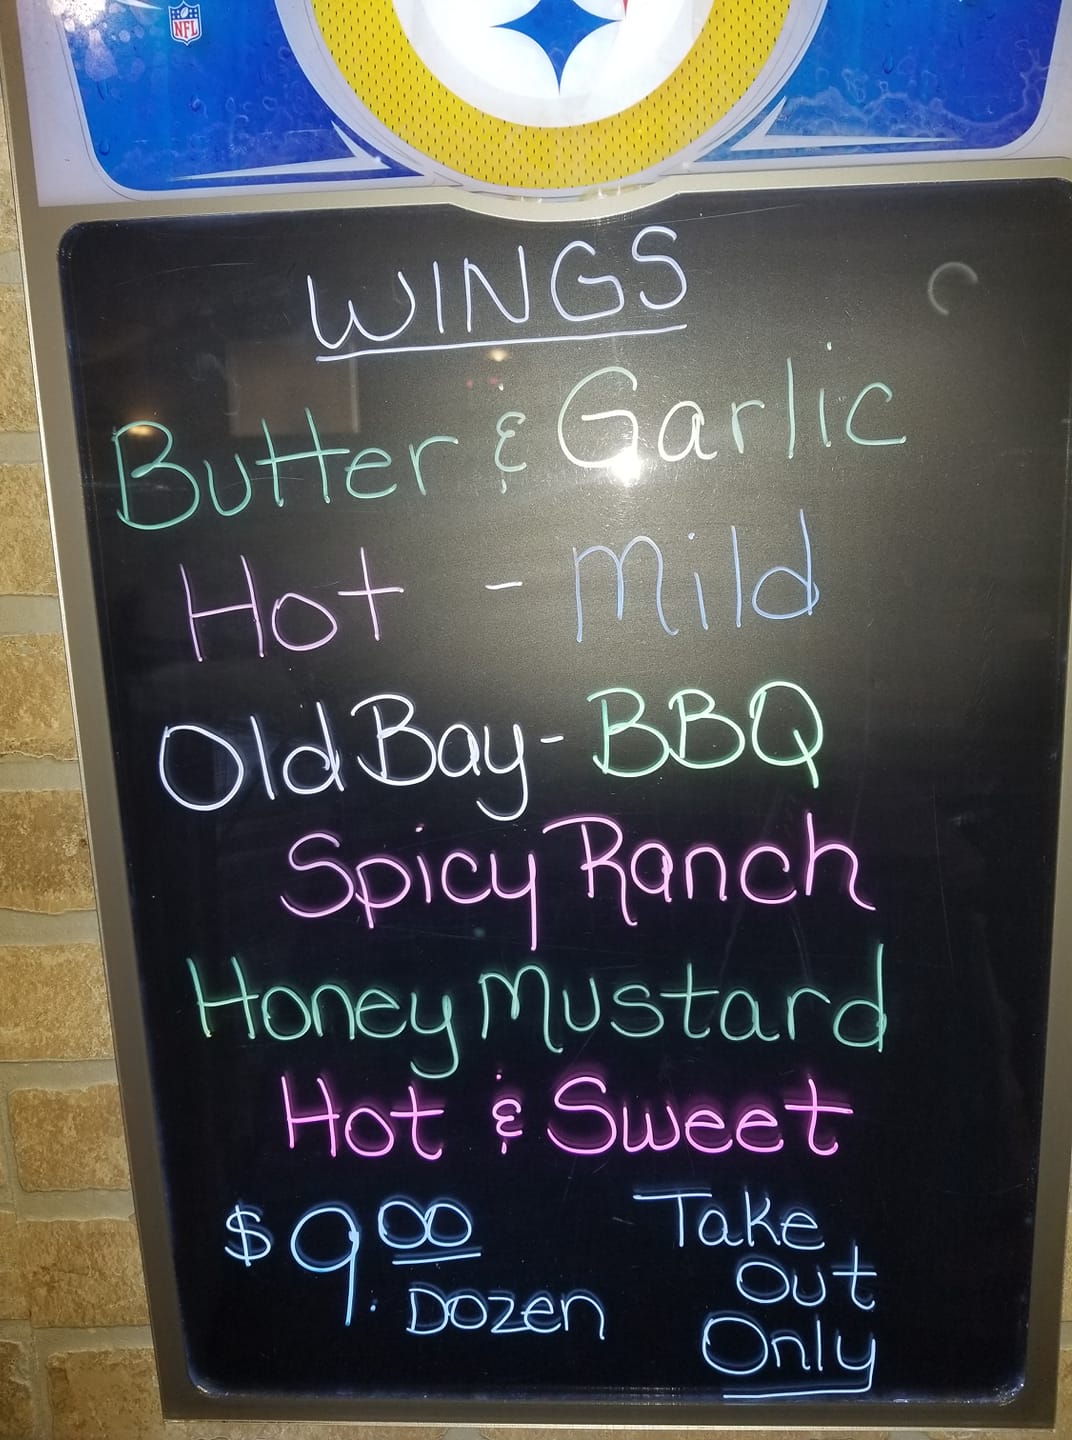 NFL
WINGS
Butter & Garlic
Hot - Mild
Old Bay - BBQ
Spicy Ranch
Honey Mustard
Hot & Sweet
$9.00 Dozen
Take
Out
Only